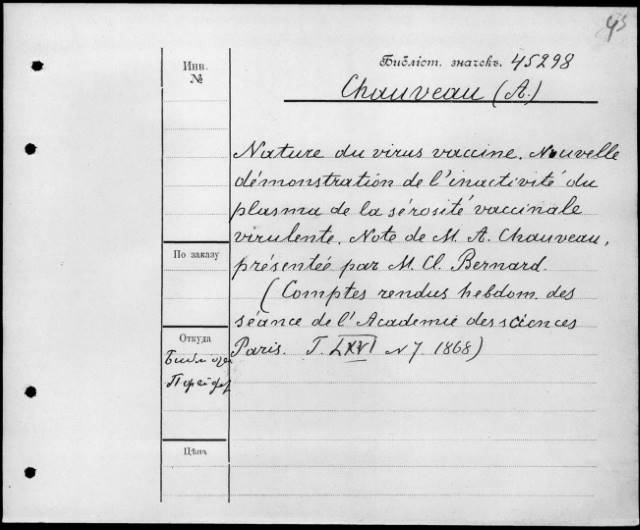 43
Библіот. значекъ. 45298
Инв.
№
Chauveau (A.)
Nature du virus vaccine. Nouvelle
démonstration de l'inactivité du
plasma de la sérosité vaccinale
virulente. Note de M. A. Chauveau,
présentée par M. Cl. Bernard.
(Comptes rendus hebdom. des
séance de l'Academie des sciences
Paris. T. LXVI N 7. 1868)
По заказу
Откуда
Цѣна